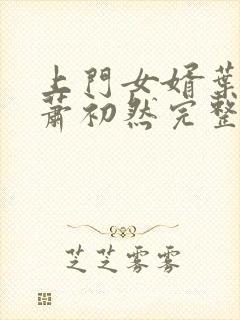 上門女婿葉
蕭初然完整
芝芝雾雾